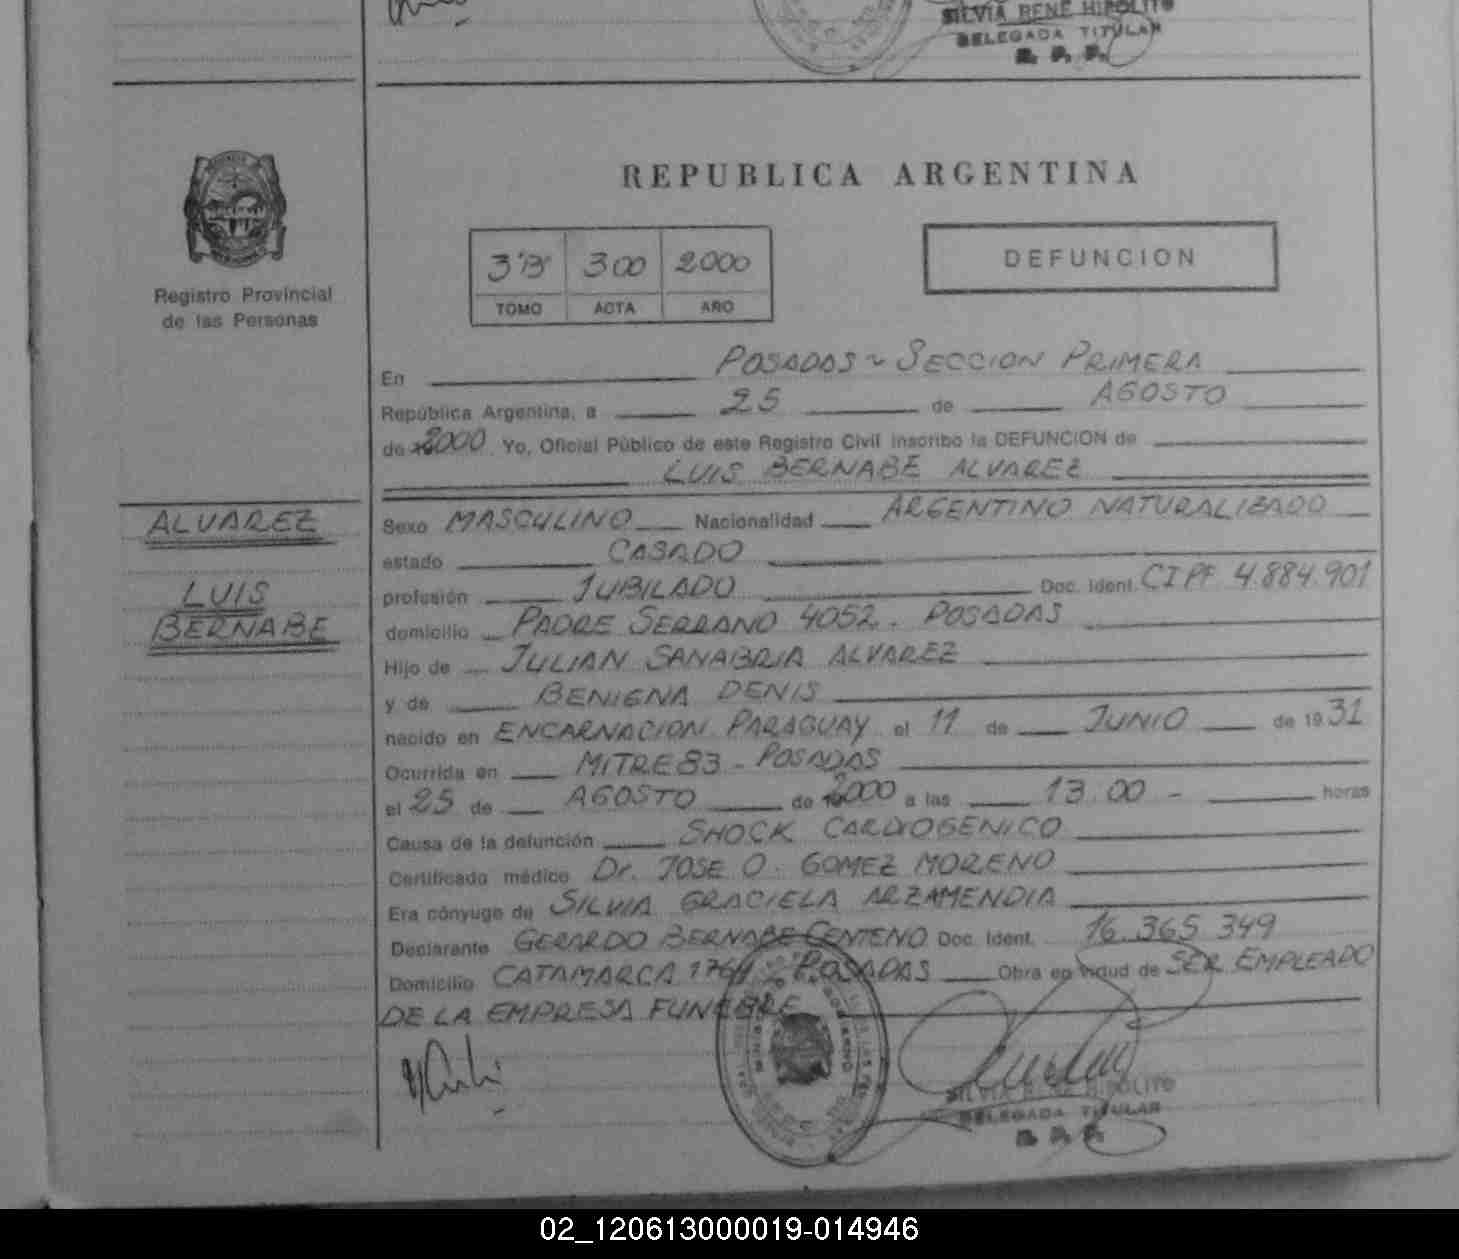 SILVIA RENE HIPOLITO
DELEGADA TITULAR
R. P. P.
REPUBLICA ARGENTINA
3 "B" 300 2000
TOMO ACTA AÑO
DEFUNCION
Registro Provincial
de las Personas
En POSADAS - SECCION PRIMERA
República Argentina, a 25 de AGOSTO
de 2000 Yo, Oficial Público de este Registro Civil inscribo la DEFUNCION de
LUIS BERNABE ALVAREZ
ALVAREZ
LUIS
BERNABE
Sexo MASCULINO Nacionalidad ARGENTINO NATURALIZADO
estado CASADO
profesión JUBILADO Doc. Ident. CIPF 4.884.901
domicilio PADRE SERRANO 4052. POSADAS
Hijo de JULIAN SANABRIA ALVAREZ
y de BENIGNA DENIS
nacido en ENCARNACION. PARAGUAY el 11 de JUNIO de 1931
Ocurrida en MITRE 83 - POSADAS
el 25 de AGOSTO de 2000 a las 13.00 - horas
Causa de la defunción SHOCK CARDIOGENICO
Certificado médico Dr. JOSE O. GOMEZ MORENO
Era cónyuge de SILVIA GRACIELA ARZAMENDIA
Declarante GERARDO BERNABE CENTENO Doc. Ident. 16.365.349
Domicilio CATAMARCA POSADAS Obra en virtud de SER EMPLEADO
DE LA EMPRESA FUNEBRE
SILVIA RENE HIPOLITO
DELEGADA TITULAR
R. P. P.
02_120613000019-014946